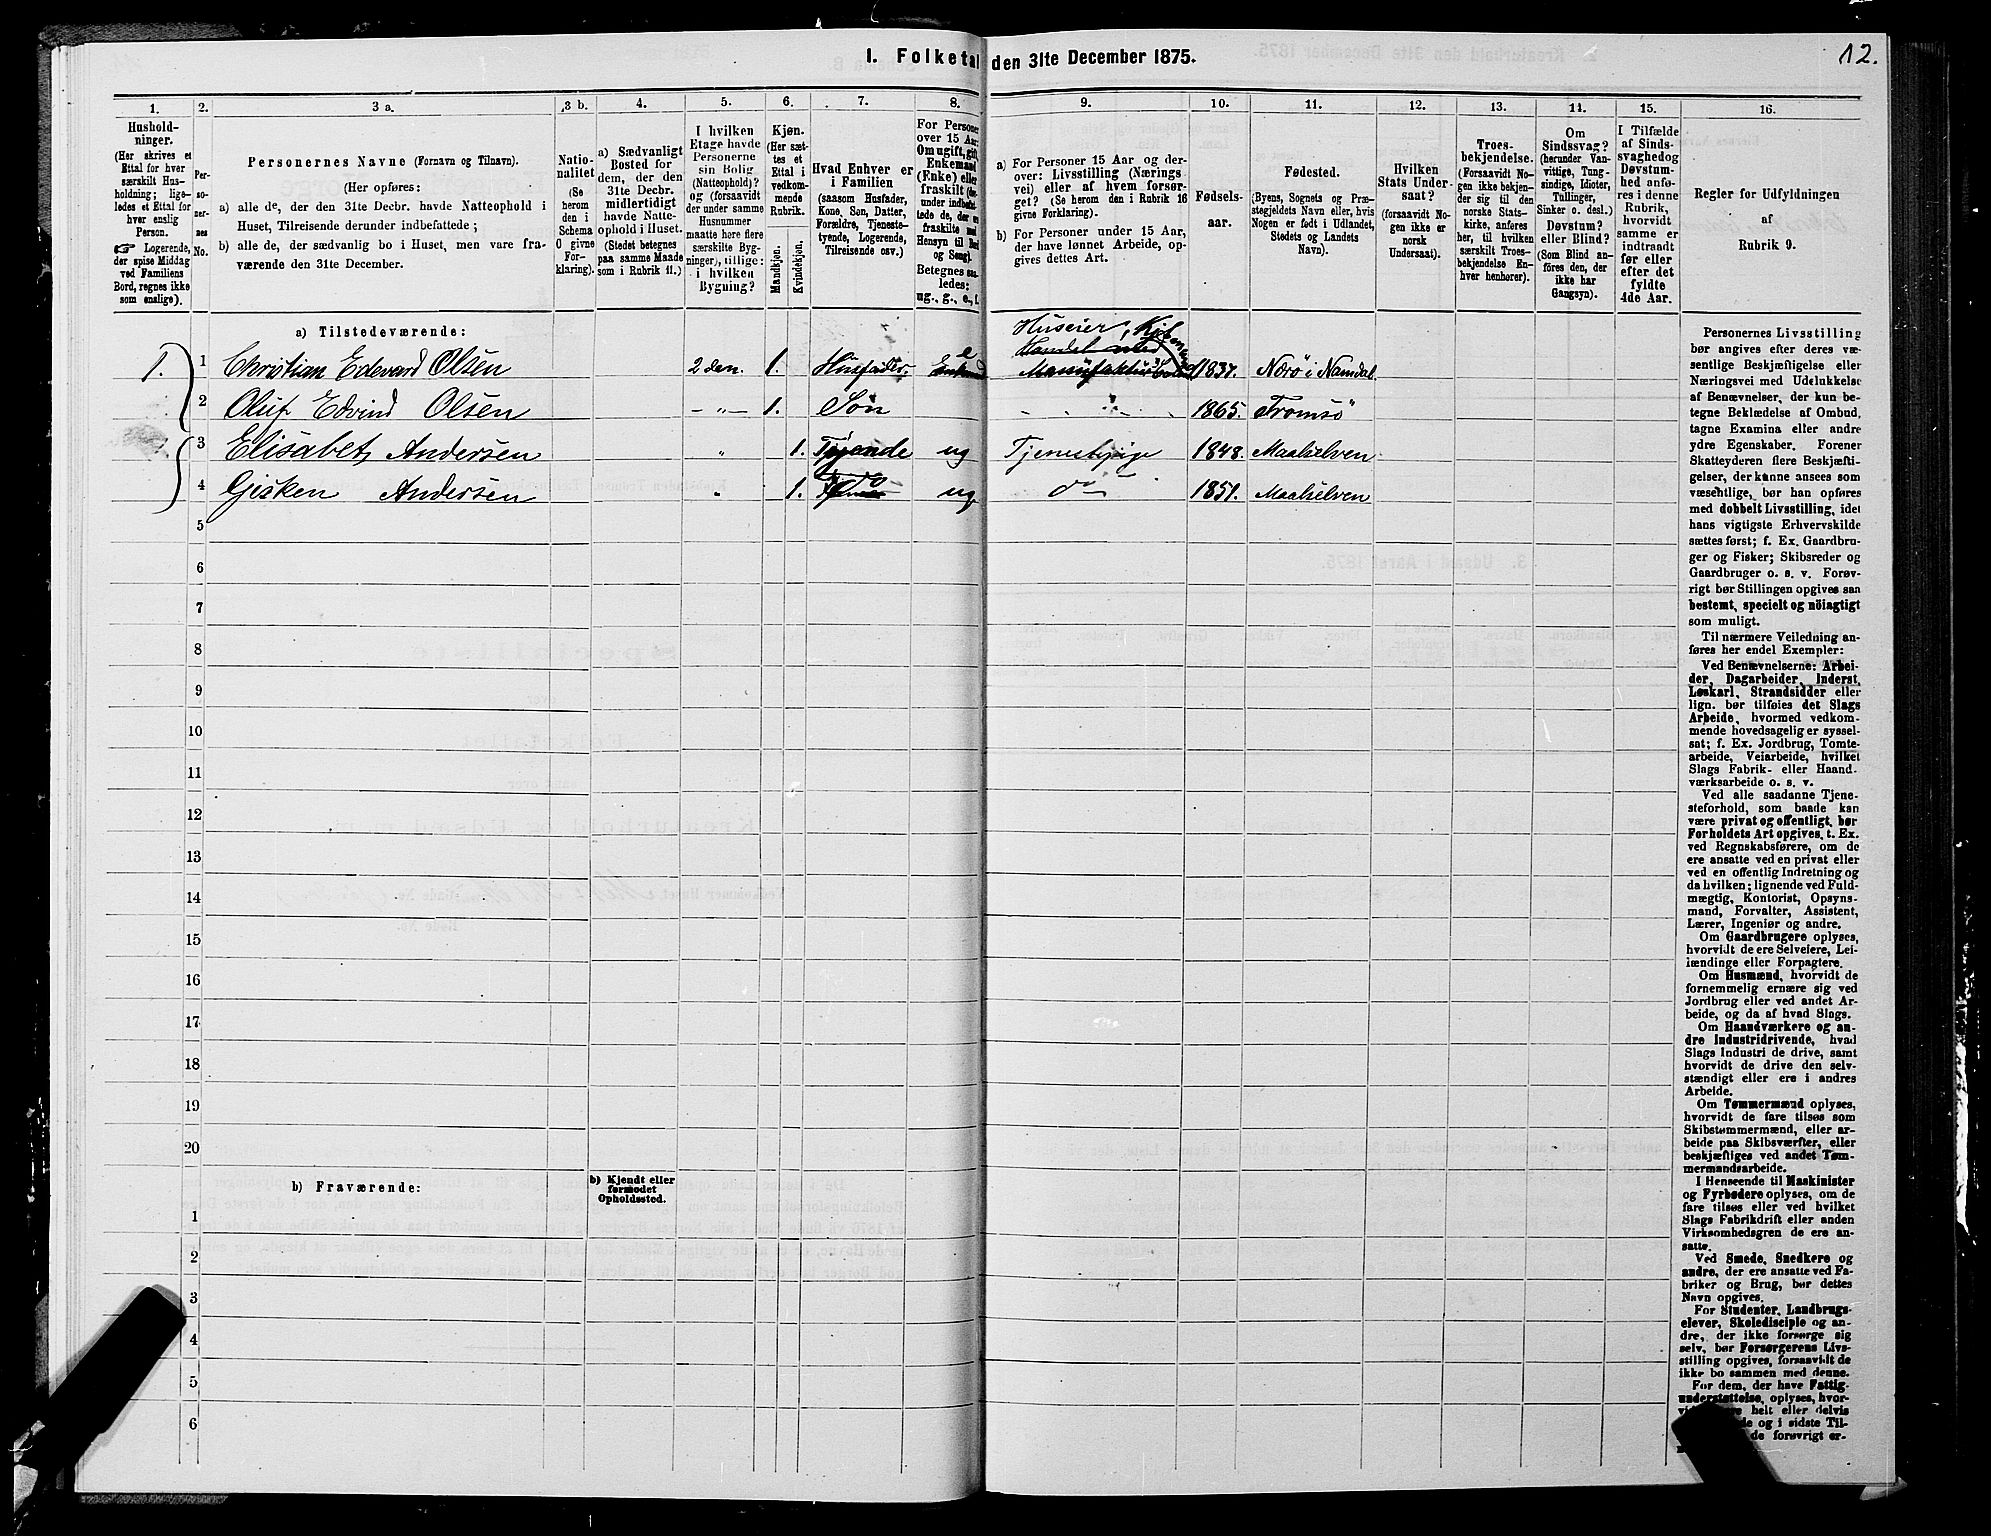 I. Folketal den 31te December 1875.
12.
1. 2. 3 a. 3 b. 4. 5. 6. 7. 8. 9. 10. 11. 12. 13. 14. 15. 16.
Hushold-
ninger.
(Her skrives et
Ettal for hver
særskilt Hus-
holdning; lige-
ledes et Ettal for
hver enslig
Person.
☞ Logerende,
der spise Middag
ved Familiens
Bord, regnes ikke
som enslige).
Per-
so-
ner-
nes
No.
Personernes Navne (Fornavn og Tilnavn).
(Her opføres:
a) alle de, der den 31te Decbr. havde Natteophold i
Huset, Tilreisende derunder indbefattede;
b) alle de, der sædvanlig bo i Huset, men vare fra-
værende den 31te December.
Natio-
nalitet
(Se
herom
den i
Schema
O givne
For-
klaring).
a) Sædvanligt
Bosted for
dem, der den
31te Decbr.
midlertidigt
havde Natte-
ophold i Huset.
(Stedet betegnes
paa samme Maade
som i Rubrik 11.)
I hvilken
Etage havde
Personerne
sin Bolig
(Natteophold)?
og (forsaavidt
der under samme
Husnummer
maatte høre flere
særskilte Byg-
ninger), tillige:
i hvilken
Bygning?
Kjøn.
(Her sæt-
tes et
Ettal i
vedkom-
mende
Rubrik.
Mandkjøn.
Kvindekjøn.
Hvad Enhver er
i Familien
(saasom Husfader,
Kone, Søn, Datter,
Forældre, Tjeneste-
tyende, Logerende,
Tilreisende osv.)
For Personer
over 15 Aar:
Om ugift, gift,
Enkemand
(Enke) eller
fraskilt (der-
under indbefat-
tede de, der ere
fraskilte med
Hensyn til Bord
og Seng).
Betegnes saa-
ledes:
ug., g., e., f.
a) For Personer 15 Aar og der-
over: Livsstilling (Nærings-
vei) eller af hvem forsør-
get? (Se herom den i Rubrik 16
givne Forklaring).
b) For Personer under 15 Aar,
der have lønnet Arbeide, op-
gives dettes Art.
Fødsels-
aar.
Fødested.
(Byens, Sognets og Præ-
stegjeldets Navn eller, hvis
Nogen er født i Udlandet,
Stedets og Landets
Navn).
Hvilken
Stats Under-
saat?
(forsaavidt No-
gen ikke er
norsk
Undersaat).
Troes-
bekjendelse.
(Forsaavidt No-
gen ikke bekjen-
der sig til den
norske Stats-
kirke, anføres
her, til hvilken
særskilt Troes-
bekjendelse En-
hver henhører).
Om
Sindssvag?
(herunder Van-
vittige, Tung-
sindige, Idioter,
Tullinger,
Sinker o. desl.)
Døvstum?
eller Blind?
(Som Blind an-
føres den, der
ikke har
Gangsyn).
I Tilfælde
af Sinds-
svaghedog
Døvstum-
hed anfø-
res i denne
Rubrik,
hvorvidt
samme er
indtraadt
før eller
efter det
fyldte
4de Aar.
Regler for Udfyldningen
af
Rubrik 9.
a) Tilstedeværende:
Huseier, Kjøbmand
Handel med
1. 1 Christian Edevard Olsen 2 den. 1. Husfader e 1837. Nærø i Namdal.
2 Oluf Edvind Olsen – " – 1. Søn 1865. Tromsø
3 Elisabet Andersen " 1. Tyende ug Tjenestepige 1848. Maalselven
4 Gisken Andersen " 1. do ug do 1851. Maalselven
5
6
7
8
9
10
11
12
13
14
15
16
17
18
19
20
b) Fraværende:
b) Kjendt eller
formodet
Opholdssted.
1
2
3
4
5
6
Personernes Livsstilling
bør angives efter deres væ-
sentlige Beskjæftigelse eller
Næringsvei med Udelukkelse
af Benævnelser, der kun be-
tegne Beklædelse af Ombud,
tagne Examina eller andre
ydre Egenskaber. Forener
Skatteyderen flere Beskjæfti-
gelser, der kunne ansees som
væsentlige, bør han opføres
med dobbelt Livsstilling, idet
hans vigtigste Erhvervskilde
sættes først; f. Ex. Gaardbru-
ger og Fisker; Skibsreder og
Gaardbruger o. s. v. Forøv-
rigt bør Stillingen opgives saa
bestemt, specielt og nöiagtigt
som muligt.
Til nærmere Veiledning an-
føres her endel Exempler:
Ved Benævnelserne: Arbei-
der, Dagarbeider, Inderst,
Løskarl, Strandsidder eller
lign. bør tilføies det Slags
Arbeide, hvormed vedkom-
mende hovedsagelig er syssel-
sat; f. Ex. Jordbrug, Tomte-
arbeide, Veiarbeide, hvilket
Slags Fabrik- eller Haand-
værksarbeide o. s. v.
Ved alle saadanne Tjene-
steforhold, som baade kan
være privat og offentligt, bør
Forholdets Art opgives, t. Ex.
ved Regnskabsførere, om de
ere ansatte ved en privat eller
ved en offentlig Indretning og
da hvilken; lignende ved Fuld-
mægtig, Kontorist, Opsyns-
mand, Forvalter, Assistent,
Lærer, Ingeniør og andre.
Om Gaardbrugere oplyses,
hvorvidt de ere Selveiere, Lei-
lændinge eller Forpagtere.
Om Husmænd, hvorvidt de
fornemmelig ernære sig ved
Jordbrug eller ved andet Ar-
beide, og da af hvad Slags.
Om Haandværkere og an-
dre Industridrivende, hvad
Slags Industri de drive, samt
hvorvidt de drive den selv-
stændigt eller ere i andres
Arbeide.
Om Tømmermænd oplyses,
hvorvidt de fare tilsøs som
Skibstømmermænd, eller ar-
beide paa Skibsværfter, eller
beskjæftiges ved andet Tøm-
mermandsarbeide.
I Henseende til Maskinister
og Fyrbødere oplyses, om de
fare tilsøs eller ved hvilket
Slags Fabrikdrift eller anden
Virksomhedsgren de ere an-
satte.
Ved Smede, Snedkere og
andre, der ere ansatte ved Fa-
briker og Brug, bør dettes
Navn opgives.
For Studenter, Landbrugs-
elever, Skoledisciple og an-
dre, der ikke forsørge sig
selv, bør Forsørgerens Livs-
stilling opgives, forsaavidt de
ikke bo sammen med denne.
For dem, der have Fattig-
understøttelse, oplyses, hvor-
helt eller delvis
og i sidste Til-
de forøvrigt er-